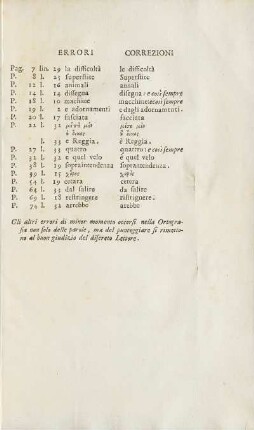 ERRORI CORREZIONI
Pag. 7 lin. 29 la difficoltà le difficoltà
P. 8 l. 25 superstite Superstite
P. 12 l. 16 animali annali
P. 14 l. 14 dissegno disegno: e così sempre
P. 18 l. 10 machine macchine: e così sempre
P. 19 l. 2 e adornamenti e dagli adornamenti.
P. 20 l. 17 fasciata facciata
P. 22 l. 32
l. 33 e Reggia. è Reggia.
P. 27 l. 33 quatro quattro: e così sempre
P. 31 l. 32 e quel velo è quel velo
P. 38 l. 19 sopraintendenza soprantendenza.
P. 39 l. 15
P. 54 l. 19 cetara cetera
P. 64 l. 33 dal salire da salire
P. 69 l. 18 ristringere ristrignere.
P. 74 l. 32 arrebbe arebbe
Gli altri errori di minor momento occorsi nella Ortogra-
fia non solo delle parole, ma del punteggiare si rimetto-
no al buon giudizio del discreto Lettore.